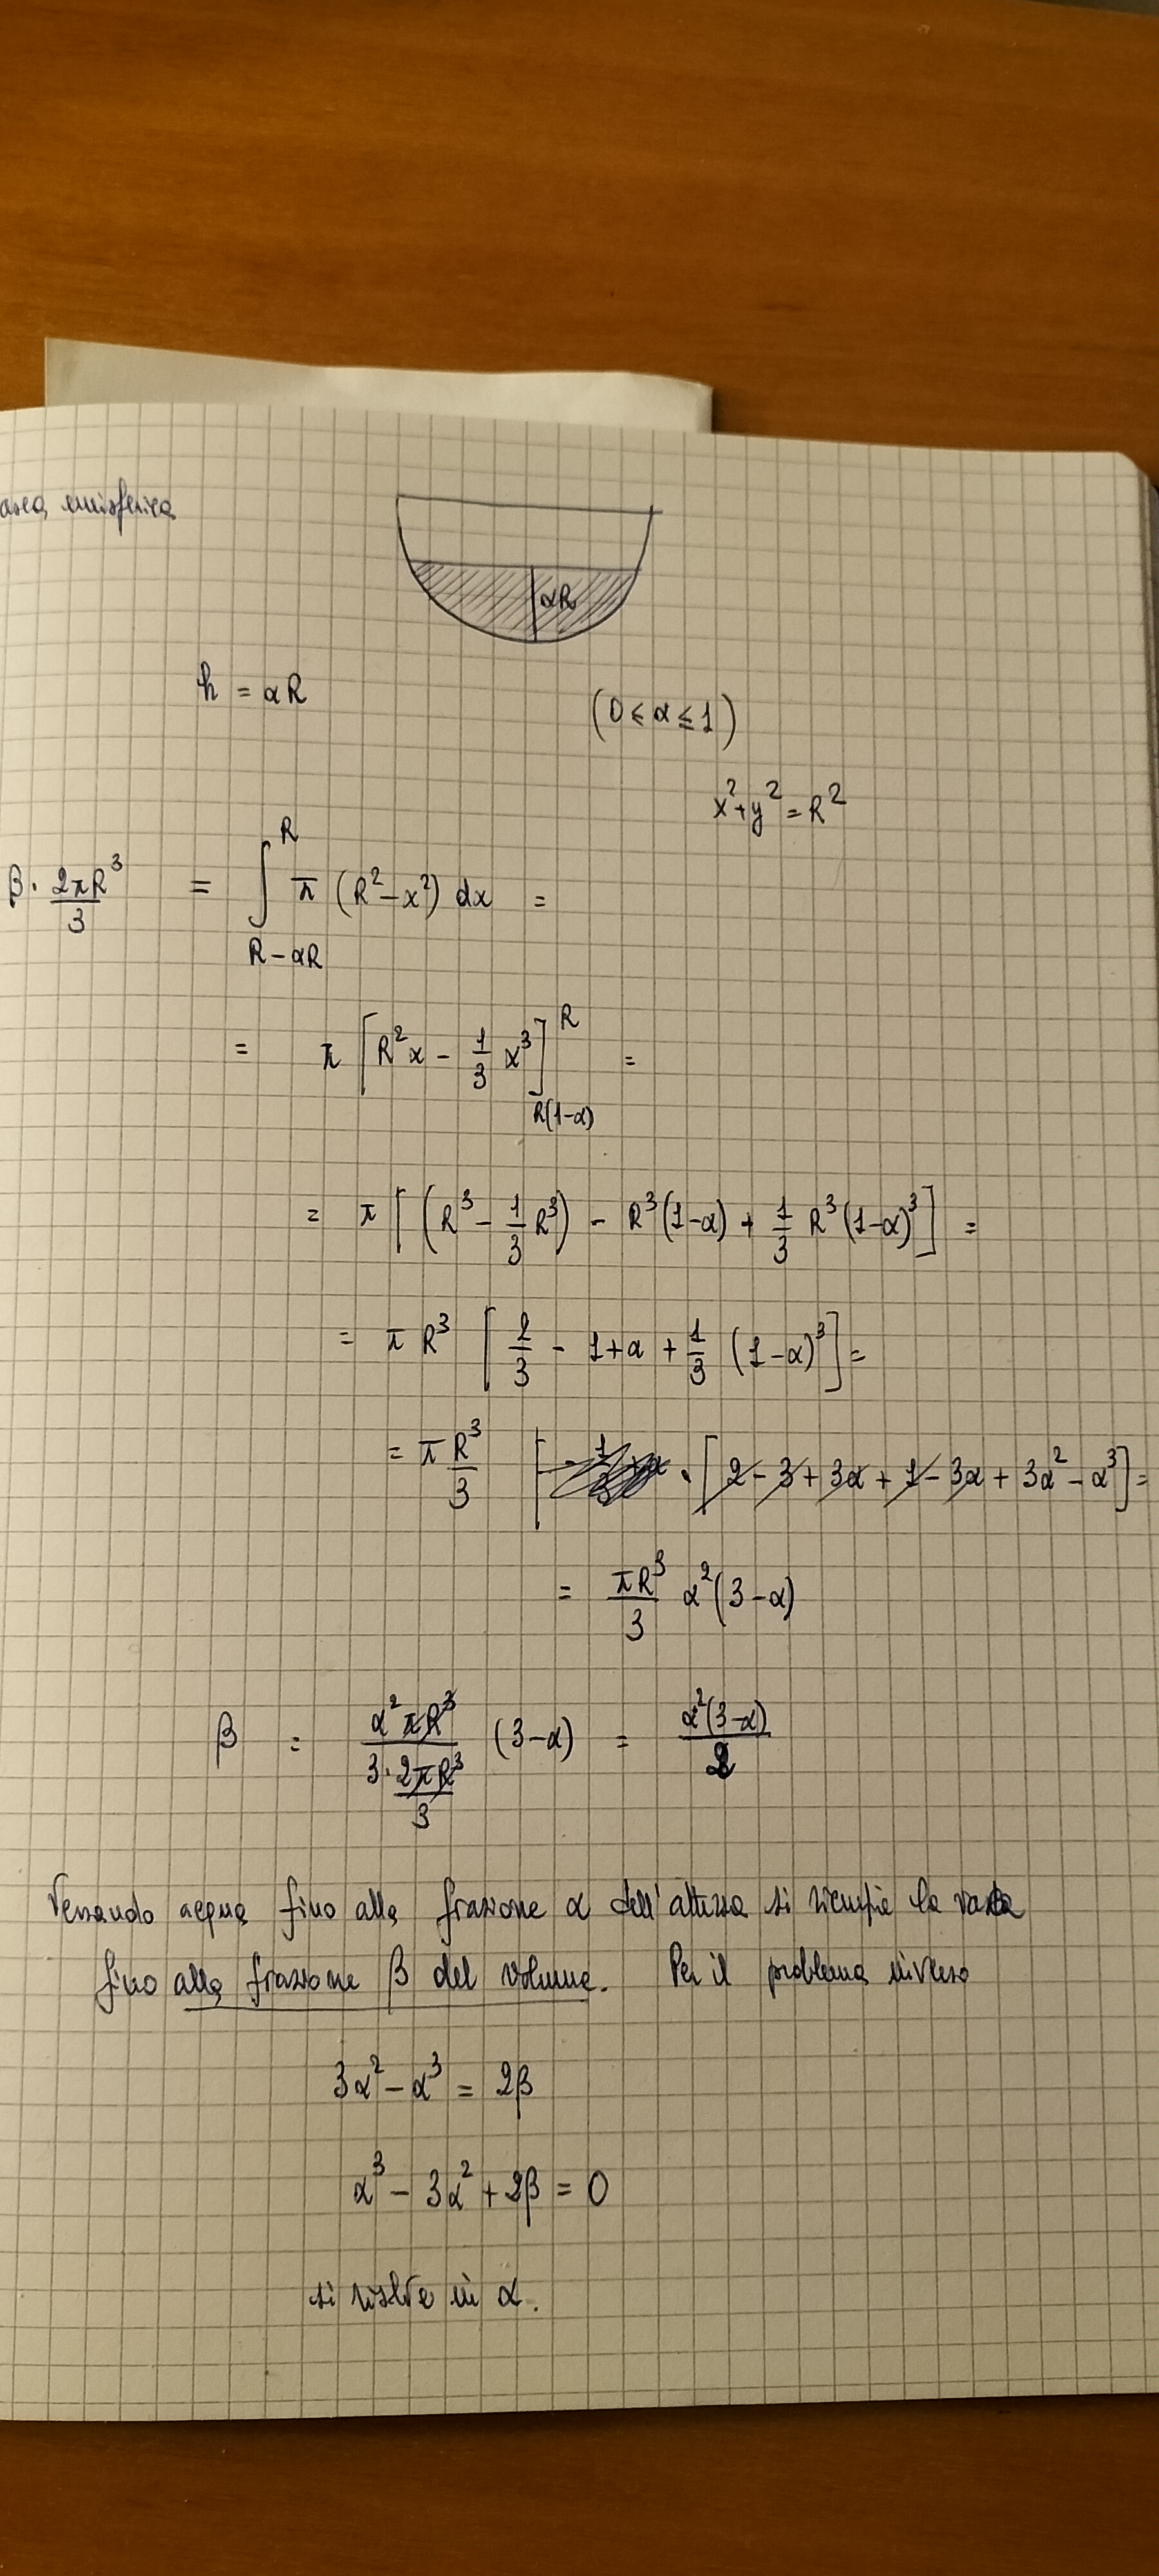 emisferica
αR
h = αR (0 ≤ α ≤ 1)
x² + y² = R²
β · 2πR³/3 = ∫_{R-αR}^{R} π (R² - x²) dx =
= π [R²x - 1/3 x³]_{R(1-α)}^{R} =
= π [(R³ - 1/3 R³) - R³(1-α) + 1/3 R³(1-α)³] =
= π R³ [2/3 - 1 + α + 1/3 (1-α)³] =
= π R³/3 · [2 - 3 + 3α + 1 - 3α + 3α² - α³] =
= πR³/3 α²(3-α)
β = α²πR³/(3 · 2πR³/3) (3-α) = α²(3-α)/2
Versando acqua fino alla frazione α dell'altezza si riempie la vasca
fino alla frazione β del volume. Per il problema inverso
3α² - α³ = 2β
α³ - 3α² + 2β = 0
si risolve in α.